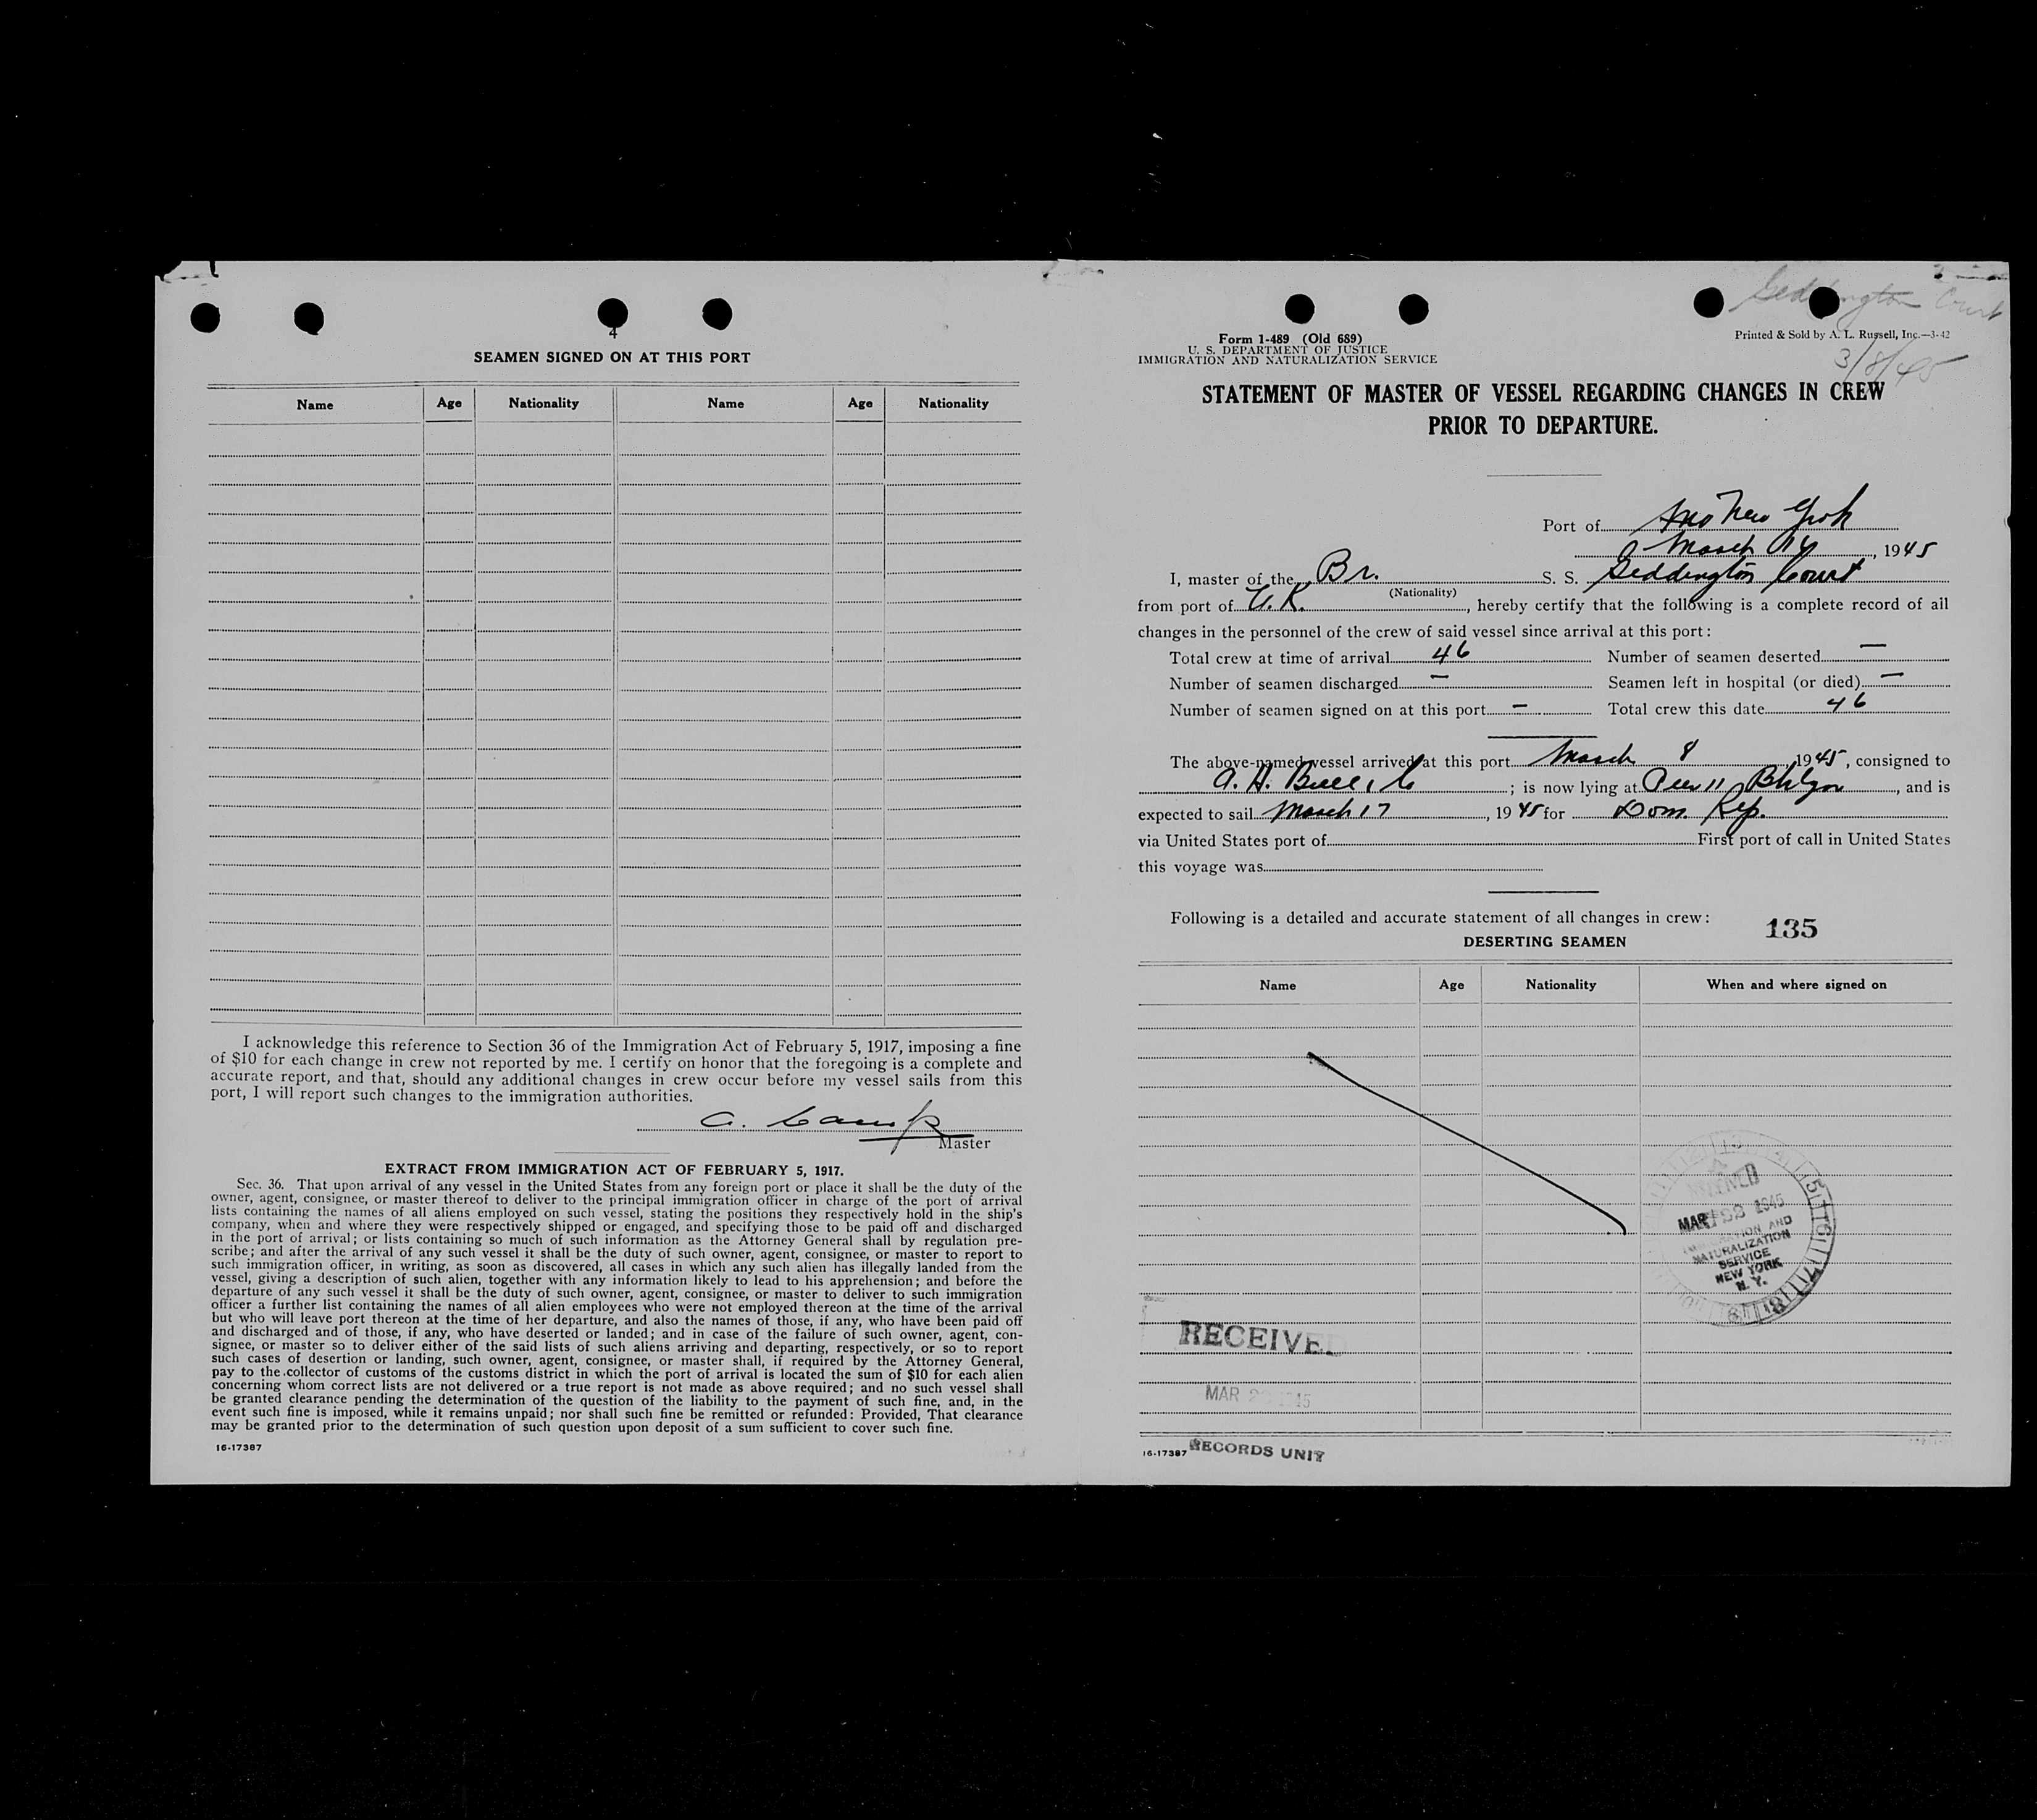 4
SEAMEN SIGNED ON AT THIS PORT
Name Age Nationality Name Age Nationality
I acknowledge this reference to Section 36 of the Immigration Act of February 5, 1917, imposing a fine
of $10 for each change in crew not reported by me. I certify on honor that the foregoing is a complete and
accurate report, and that, should any additional changes in crew occur before my vessel sails from this
port, I will report such changes to the immigration authorities.
Master
EXTRACT FROM IMMIGRATION ACT OF FEBRUARY 5, 1917.
Sec. 36. That upon arrival of any vessel in the United States from any foreign port or place it shall be the duty of the
owner, agent, consignee, or master thereof to deliver to the principal immigration officer in charge of the port of arrival
lists containing the names of all aliens employed on such vessel, stating the positions they respectively hold in the ship's
company, when and where they were respectively shipped or engaged, and specifying those to be paid off and discharged
in the port of arrival; or lists containing so much of such information as the Attorney General shall by regulation pre-
scribe; and after the arrival of any such vessel it shall be the duty of such owner, agent, consignee, or master to report to
such immigration officer, in writing, as soon as discovered, all cases in which any such alien has illegally landed from the
vessel, giving a description of such alien, together with any information likely to lead to his apprehension; and before the
departure of any such vessel it shall be the duty of such owner, agent, consignee, or master to deliver to such immigration
officer a further list containing the names of all alien employees who were not employed thereon at the time of the arrival
but who will leave port thereon at the time of her departure, and also the names of those, if any, who have been paid off
and discharged and of those, if any, who have deserted or landed; and in case of the failure of such owner, agent, con-
signee, or master so to deliver either of the said lists of such aliens arriving and departing, respectively, or so to report
such cases of desertion or landing, such owner, agent, consignee, or master shall, if required by the Attorney General,
pay to the collector of customs of the customs district in which the port of arrival is located the sum of $10 for each alien
concerning whom correct lists are not delivered or a true report is not made as above required; and no such vessel shall
be granted clearance pending the determination of the question of the liability to the payment of such fine, and, in the
event such fine is imposed, while it remains unpaid; nor shall such fine be remitted or refunded: Provided, That clearance
may be granted prior to the determination of such question upon deposit of a sum sufficient to cover such fine.
16-17387
Geddington Court
Form 1-489 (Old 689)
U. S. DEPARTMENT OF JUSTICE
IMMIGRATION AND NATURALIZATION SERVICE
Printed & Sold by A. L. Russell, Inc.—3-42
3/8/45
STATEMENT OF MASTER OF VESSEL REGARDING CHANGES IN CREW
PRIOR TO DEPARTURE.
Port of New York
March 16, 1945
I, master of the Br. S. S. Geddington Court
(Nationality)
from port of U.K., hereby certify that the following is a complete record of all
changes in the personnel of the crew of said vessel since arrival at this port:
Total crew at time of arrival 46 Number of seamen deserted —
Number of seamen discharged — Seamen left in hospital (or died) —
Number of seamen signed on at this port — Total crew this date 46
The above-named vessel arrived at this port March 8 1945, consigned to
A. H. Bull, Co; is now lying at Pier 11 Bklyn, and is
expected to sail March 17, 1945 for Dom. Rep.
via United States port of First port of call in United States
this voyage was
Following is a detailed and accurate statement of all changes in crew:
135
DESERTING SEAMEN
Name Age Nationality When and where signed on
MAR 22 1945
IMMIGRATION AND
NATURALIZATION
SERVICE
NEW YORK
N. Y.
RECEIVED
MAR
16-17387
RECORDS UNIT